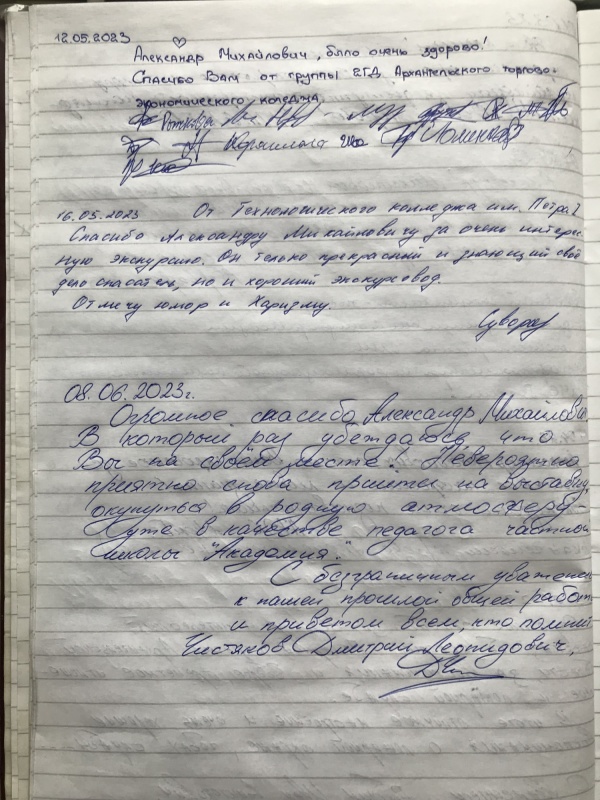 12.05.2023 ♡
Александр Михайлович, было очень здорово!
Спасибо Вам от группы 2ГД Архангельского торгово-
экономического коледжа
16.05.2023 От Технологического колледжа им. Петра I
Спасибо Александру Михайловичу за очень интерес-
ную экскурсию. Он только прекрасный и знающий своё
дело спасатель, но и хороший экскурсовод.
Отмечу юмор и Харизму.
08.06.2023г.
Огромное спасибо, Александр Михайлович
В который раз убеждаюсь, что
Вы на своём месте! Невероятно
приятно снова прийти на выставку,
окунуться в родную атмосферу -
уже в качестве педагога частной
школы "Академия."
С безграничным уважением
к нашей прошлой общей работе
и приветом всем, кто помнит
Чистяков Дмитрий Леонидович,